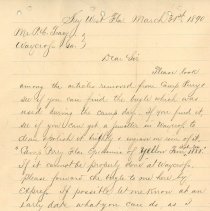 Key West Fla. March 31st 1890
Mr. P.C.
Waycross Ga.
Dear Sir
Please look
among the articles removed from Camp Perry
see if you can find the bugle which was
used during the camp days. If you find it,
see if you can get a jeweller in Waycross to
clean & polish it & engrave on som of it,
"Camp Perry Fla. Epidemic of Yellow Fever 1888."
If it cannot be properly done at Waycross
please forward the bugle to me here by
Express if possible. Let me know at an
early date what you can do, as I